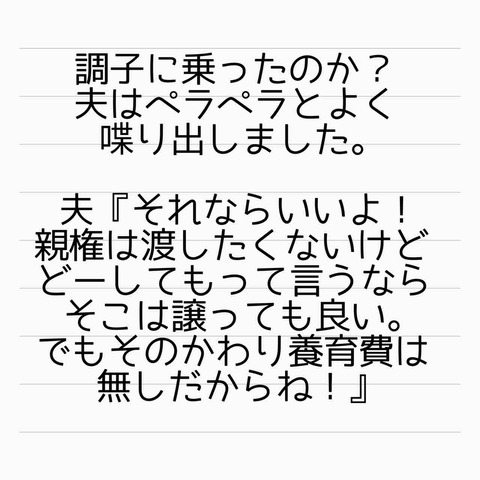 調子に乗ったのか？
夫はペラペラとよく
喋り出しました。
夫『それならいいよ！
親権は渡したくないけど
どーしてもって言うなら
そこは譲っても良い。
でもそのかわり養育費は
無しだからね！』